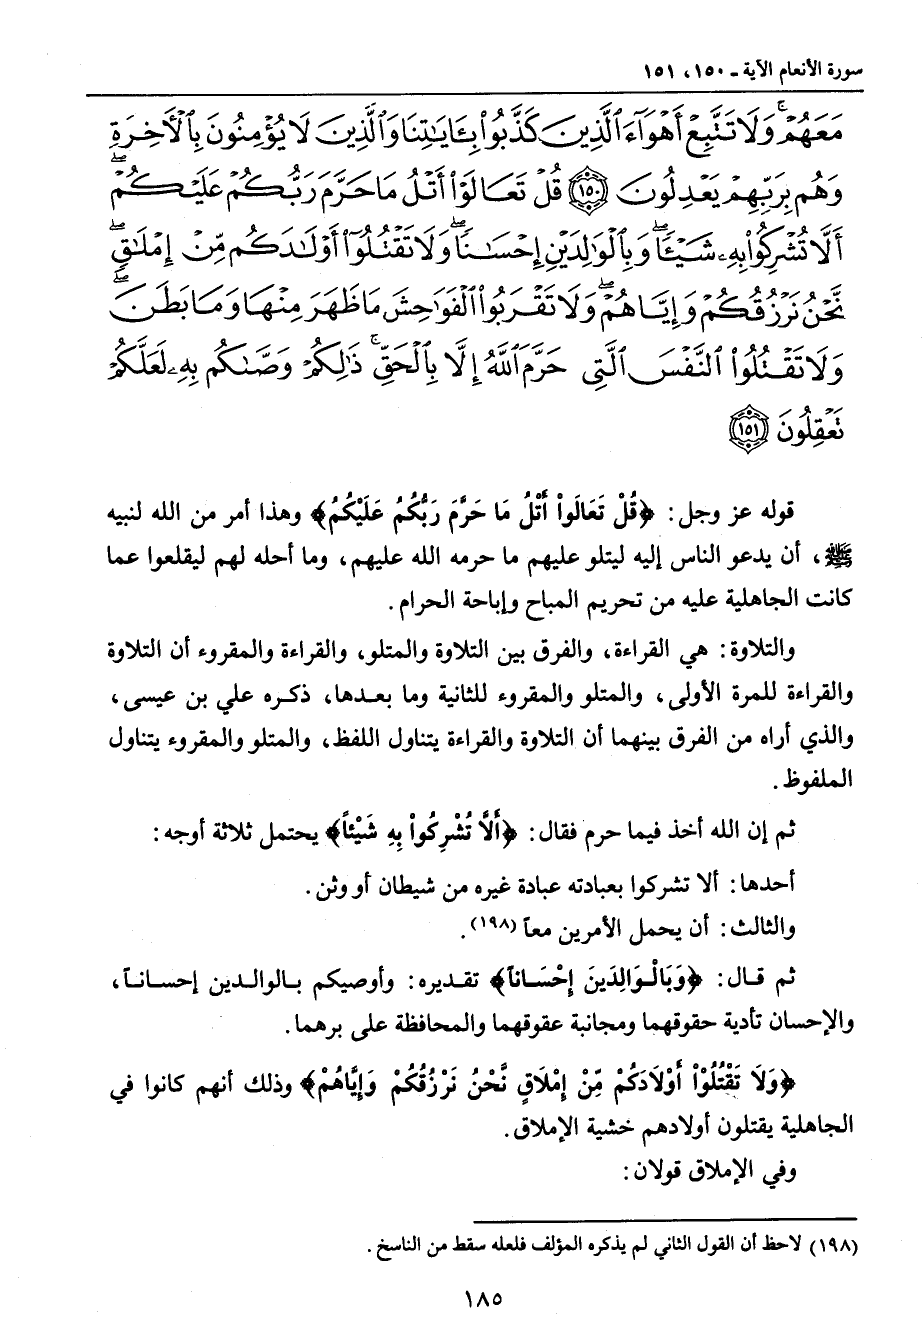 سورة الأنعام الآية ـ ١٥٠، ١٥١
مَعَهُمْ ۚ وَلَا تَتَّبِعْ أَهْوَآءَ ٱلَّذِينَ كَذَّبُوا۟ بِـَٔايَـٰتِنَا وَٱلَّذِينَ لَا يُؤْمِنُونَ بِٱلْـَٔاخِرَةِ
وَهُم بِرَبِّهِمْ يَعْدِلُونَ ﴿١٥٠﴾ قُلْ تَعَالَوْا۟ أَتْلُ مَا حَرَّمَ رَبُّكُمْ عَلَيْكُمْ ۖ
أَلَّا تُشْرِكُوا۟ بِهِۦ شَيْـًٔا ۖ وَبِٱلْوَٰلِدَيْنِ إِحْسَـٰنًا ۖ وَلَا تَقْتُلُوٓا۟ أَوْلَـٰدَكُم مِّنْ إِمْلَـٰقٍ ۖ
نَّحْنُ نَرْزُقُكُمْ وَإِيَّاهُمْ ۖ وَلَا تَقْرَبُوا۟ ٱلْفَوَٰحِشَ مَا ظَهَرَ مِنْهَا وَمَا بَطَنَ ۖ
وَلَا تَقْتُلُوا۟ ٱلنَّفْسَ ٱلَّتِى حَرَّمَ ٱللَّهُ إِلَّا بِٱلْحَقِّ ۚ ذَٰلِكُمْ وَصَّىٰكُم بِهِۦ لَعَلَّكُمْ
تَعْقِلُونَ ﴿١٥١﴾
قوله عز وجل: ﴿قُلْ تَعَالَواْ أَتْلُ مَا حَرَّمَ رَبُّكُمُ عَلَيْكُمُ﴾ وهذا أمر من الله لنبيه
ﷺ، أن يدعو الناس إليه ليتلو عليهم ما حرمه الله عليهم، وما أحله لهم ليقلعوا عما
كانت الجاهلية عليه من تحريم المباح وإباحة الحرام.
والتلاوة: هي القراءة، والفرق بين التلاوة والمتلو، والقراءة والمقروء أن التلاوة
والقراءة للمرة الأولى، والمتلو والمقروء للثانية وما بعدها، ذكره علي بن عيسى،
والذي أراه من الفرق بينهما أن التلاوة والقراءة يتناول اللفظ، والمتلو والمقروء يتناول
الملفوظ.
ثم إن الله أخذ فيما حرم فقال: ﴿أَلَّا تُشْرِكُواْ بِهِ شَيْئاً﴾ يحتمل ثلاثة أوجه:
أحدها: ألا تشركوا بعبادته عبادة غيره من شيطان أو وثن.
والثالث: أن يحمل الأمرين معاً (١٩٨).
ثم قال: ﴿وَبَالْوَالِدَينَ إِحْسَاناً﴾ تقديره: وأوصيكم بالوالدين إحساناً،
والإحسان تأدية حقوقهما ومجانبة عقوقهما والمحافظة على برهما.
﴿وَلَا تَقْتُلُوْاْ أَوْلَادَكُمْ مِّنْ إِمْلَاقٍ نَّحْنُ نَرْزُقُكُمْ وَإِيَّاهُمْ﴾ وذلك أنهم كانوا في
الجاهلية يقتلون أولادهم خشية الإملاق.
وفي الإملاق قولان:
(١٩٨) لاحظ أن القول الثاني لم يذكره المؤلف فلعله سقط من الناسخ.
١٨٥